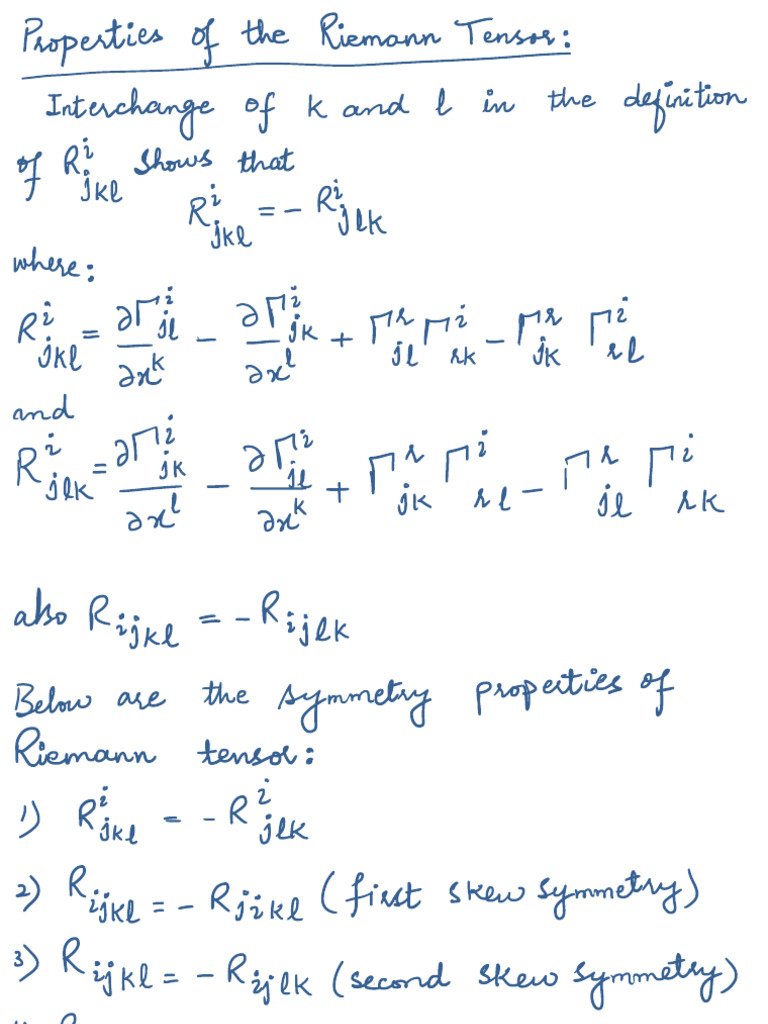 Properties of the Riemann Tensor:
Interchange of k and l in the definition
of R^i_{jkl} shows that
R^i_{jkl} = - R^i_{jlk}
where:
R^i_{jkl} = ∂Γ^i_{jl}/∂x^k - ∂Γ^i_{jk}/∂x^l + Γ^r_{jl} Γ^i_{rk} - Γ^r_{jk} Γ^i_{rl}
and
R^i_{jlk} = ∂Γ^i_{jk}/∂x^l - ∂Γ^i_{jl}/∂x^k + Γ^r_{jk} Γ^i_{rl} - Γ^r_{jl} Γ^i_{rk}
also R_{ijkl} = - R_{ijlk}
Below are the symmetry properties of
Riemann tensor:
1) R^i_{jkl} = - R^i_{jlk}
2) R_{ijkl} = - R_{jikl} (first skew symmetry)
3) R_{ijkl} = - R_{ijlk} (second skew symmetry)